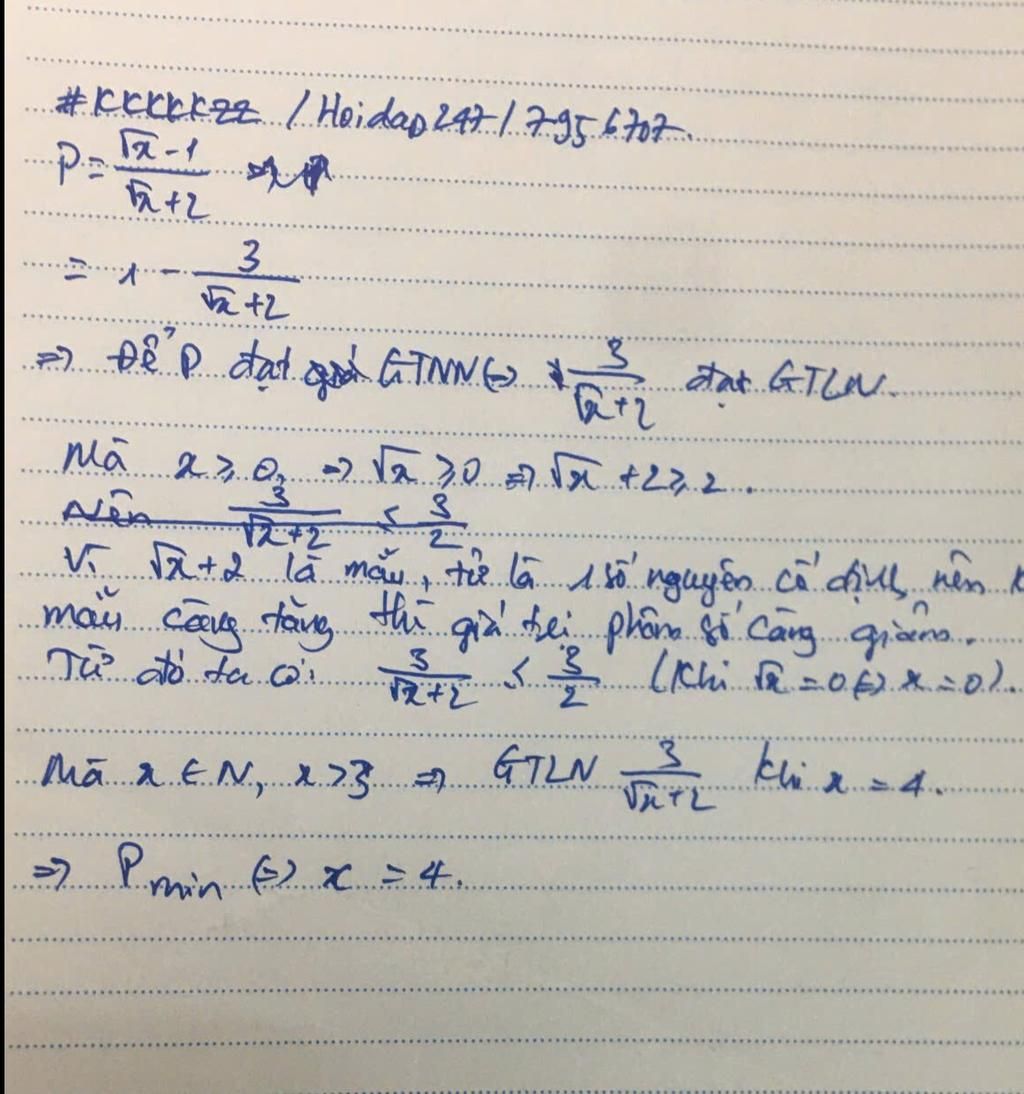 #KKKKKZZ / Hoidap247 / 7956707.
P = \frac{√x - 1}{√x + 2}
= 1 - \frac{3}{√x + 2}
=> Để P đạt GTNN <=> \frac{3}{√x + 2} đạt GTLN.
Mà x ≥ 0, => √x ≥ 0 => √x + 2 ≥ 2.
Nên \frac{3}{√x + 2} ≤ \frac{3}{2}
Vì √x + 2 là mẫu, tử là 1 số nguyên cố định, nên k
mẫu càng tăng thì giá trị phân số càng giảm.
Từ đó ta có: \frac{3}{√x + 2} ≤ \frac{3}{2} (Khi √x = 0 <=> x = 0).
Mà x ∈ N, x > 3 => GTLN \frac{3}{√x + 2} khi x = 4.
=> P min <=> x = 4.